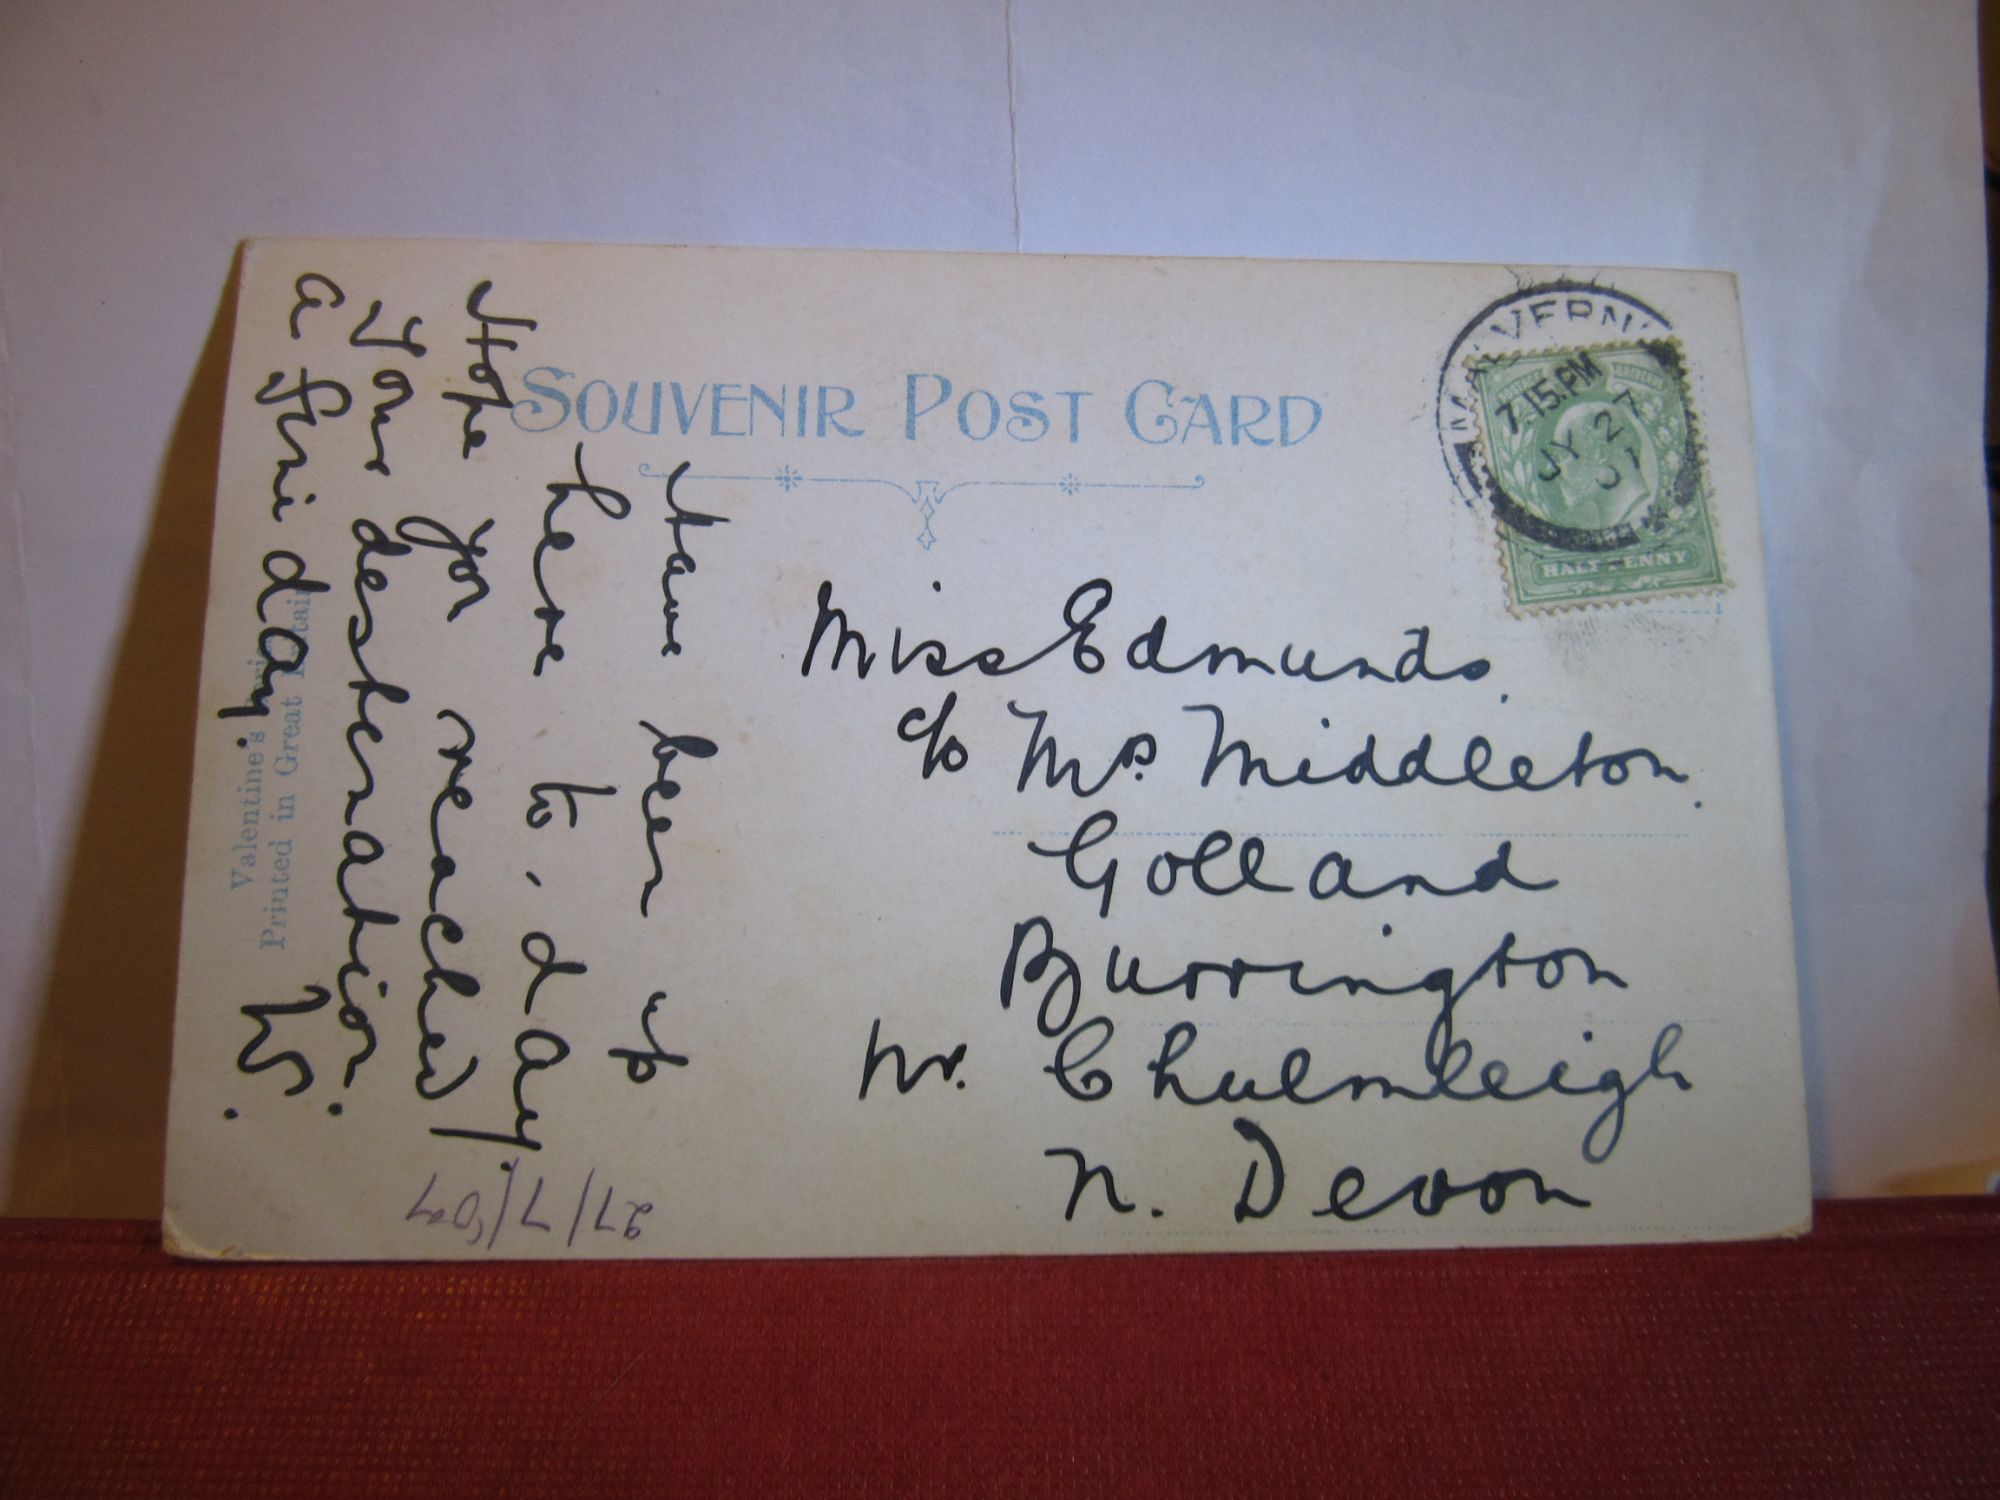 SOUVENIR POST CARD
MALVERN
7.15.PM
JY 27
07
HALFPENNY
Miss Edmunds.
c/o Mrs. Middleton.
Golland
Burrington
Nr. Chulmleigh
N. Devon
Have been up
here to-day.
Hope you reached
your desternation.
a fine day.
W.
27/7/07
Valentine's Series
Printed in Great Britain